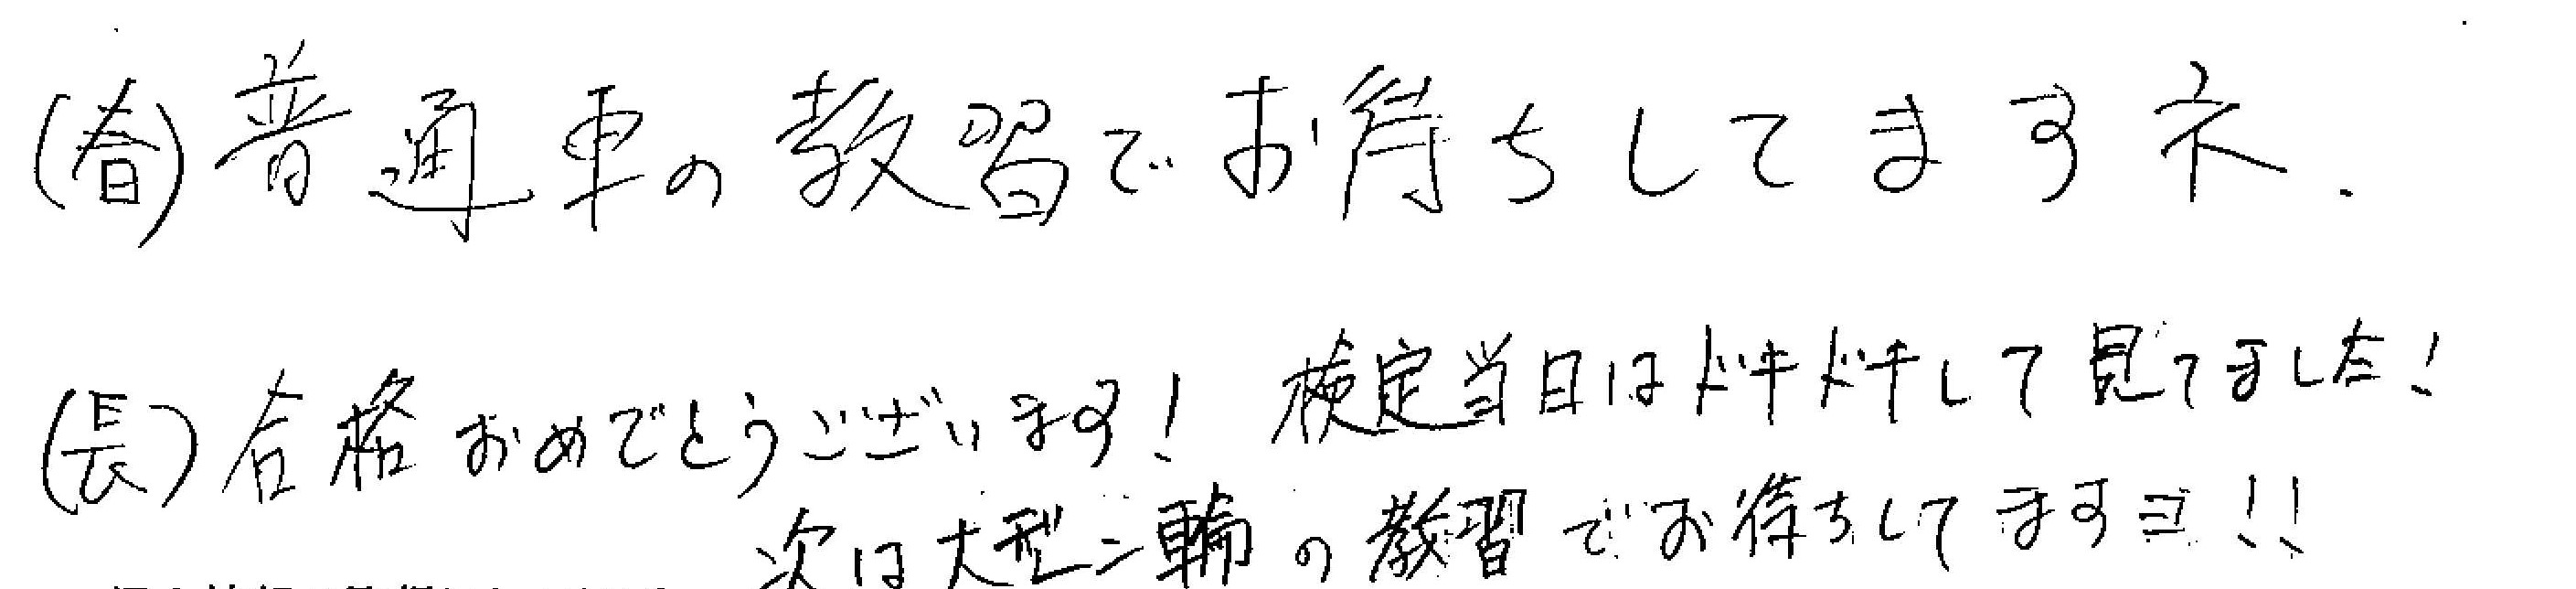 (春)普通車の教習でお待ちしてますネ.
(長)合格おめでとうございます! 検定当日はドキドキして見てました!
次は大型二輪の教習でお待ちしてますヨ!!